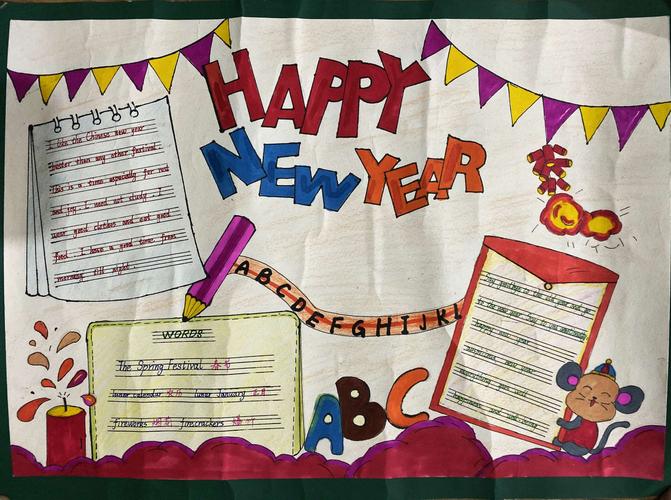 HAPPY
NEW YEAR
I like the Chinese new year
better than any other festival.
This is a time especially for rest
and joy. I need not study. I
wear good clothes and eat good
food. I have a good time from
morning till night.
ABCDEFGHIJKL
WORDS
The Spring Festival 春节
lunar calendar 农历 lunar January 正月
fireworks 烟花 firecrackers 爆竹
ABC
Say goodbye to the old year and
to the new year.
happy new year
new year
you
happiness and well-being